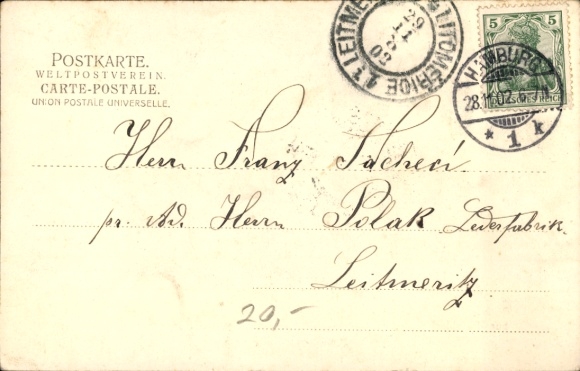 POSTKARTE.
WELTPOSTVEREIN.
CARTE-POSTALE.
UNION POSTALE UNIVERSELLE.
LEITMERITZ LITOMĚŘICE
29
11
02
5
5
HAMBURG
28.11.02.6-7N.
* 1 k
DEUTSCHES REICH
Herrn Franz
pr. Ad. Herrn Polak Lederfabrik.
Leitmeritz
20,-